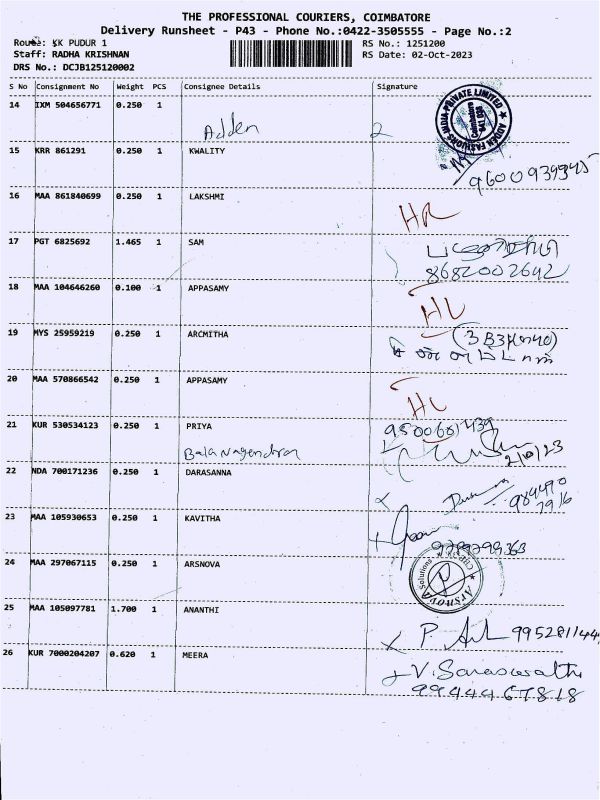 THE PROFESSIONAL COURIERS, COIMBATORE
Delivery Runsheet - P43 - Phone No.:0422-3505555 - Page No.:2
Route: KK PUDUR 1 RS No.: 1251200
Staff: RADHA KRISHNAN RS Date: 02-Oct-2023
DRS No.: DCJB125120002
S No Consignment No Weight PCS Consignee Details Signature
14 IXM 504656771 0.250 1
Adden
ADDEN FASHIONS INDIA PRIVATE LIMITED
Coimbatore
15 KRR 861291 0.250 1 KWALITY
16 MAA 861840699 0.250 1 LAKSHMI
17 PGT 6825692 1.465 1 SAM
8682002642
18 MAA 104646260 0.100 1 APPASAMY
19 MYS 25959219 0.250 1 ARCMITHA
20 MAA 570866542 0.250 1 APPASAMY
21 KUR 530534123 0.250 1 PRIYA
9500601439
Bala Nagendran
2/10/23
22 NDA 700171236 0.250 1 DARASANNA
23 MAA 105930653 0.250 1 KAVITHA
24 MAA 297067115 0.250 1 ARSNOVA
25 MAA 105097781 1.700 1 ANANTHI
26 KUR 7000204207 0.620 1 MEERA
V. Saraswathi
9944467818